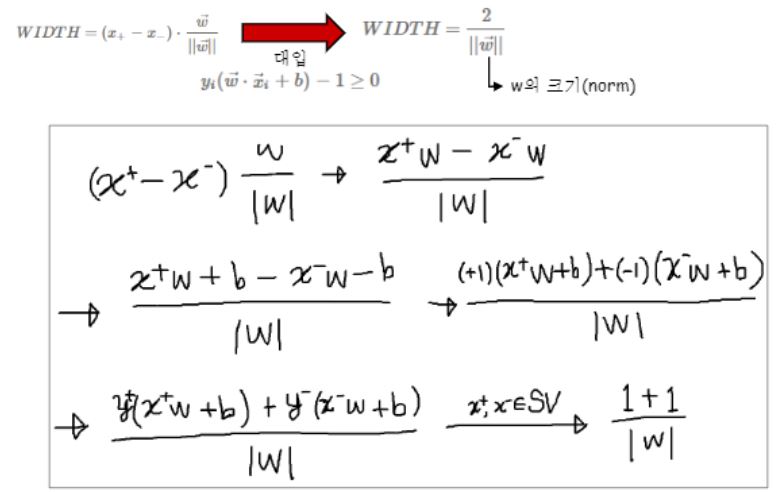 WIDTH = (x₊ − x₋) · w⃗ / ||w⃗|| WIDTH = 2 / ||w⃗||
대입
yᵢ(w⃗ · x⃗ᵢ + b) − 1 ≥ 0
w의 크기(norm)
(x⁺ − x⁻) w / |w| → (x⁺w − x⁻w) / |w|
→ (x⁺w + b − x⁻w − b) / |w| → ((+1)(x⁺w+b)+(-1)(x⁻w+b)) / |w|
→ (y⁺(x⁺w+b) + y⁻(x⁻w+b)) / |w| x⁺, x⁻∈SV → (1+1) / |w|